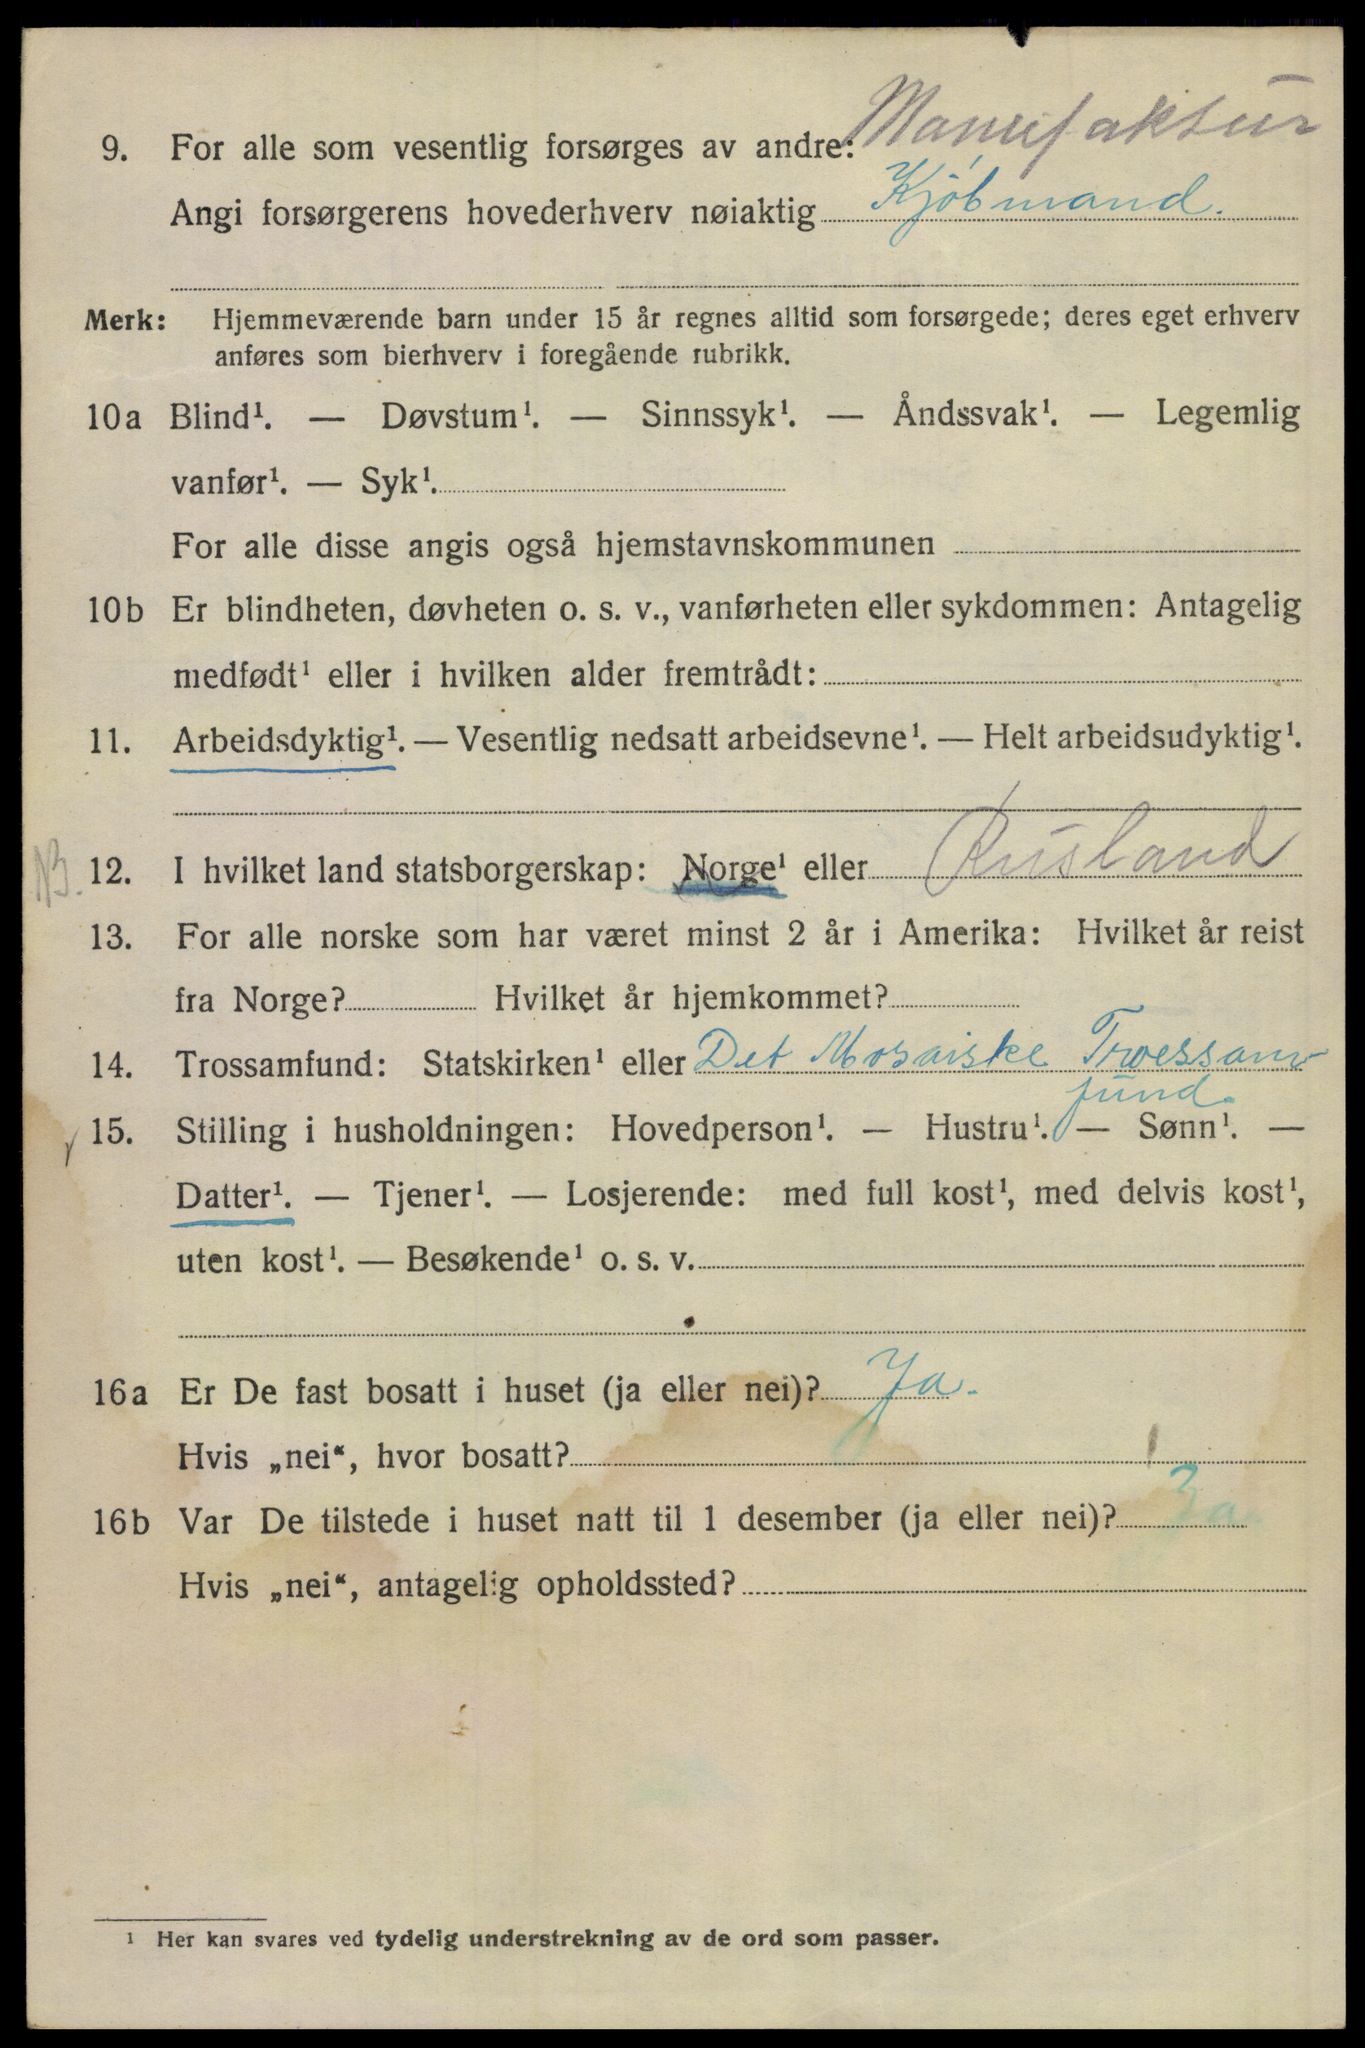 9. For alle som vesentlig forsørges av andre: Manufaktur
Angi forsørgerens hovederhverv nøiaktig Kjöbmand.
Merk: Hjemmeværende barn under 15 år regnes alltid som forsørgede; deres eget erhverv
anføres som bierhverv i foregående rubrikk.
10a Blind¹. — Døvstum¹. — Sinnssyk¹. — Åndssvak¹. — Legemlig
vanfør¹. — Syk¹.
For alle disse angis også hjemstavnskommunen
10b Er blindheten, døvheten o. s. v., vanførheten eller sykdommen: Antagelig
medfødt¹ eller i hvilken alder fremtrådt:
11. Arbeidsdyktig¹. — Vesentlig nedsatt arbeidsevne¹. — Helt arbeidsudyktig¹.
NB. 12. I hvilket land statsborgerskap: Norge¹ eller Rusland
13. For alle norske som har været minst 2 år i Amerika: Hvilket år reist
fra Norge? Hvilket år hjemkommet?
14. Trossamfund: Statskirken¹ eller Det Mosaiske Troessam-
fund.
15. Stilling i husholdningen: Hovedperson¹. — Hustru¹. — Sønn¹. —
Datter¹. — Tjener¹. — Losjerende: med full kost¹, med delvis kost¹,
uten kost¹. — Besøkende¹ o. s. v.
16a Er De fast bosatt i huset (ja eller nei)? Ja.
Hvis „nei“, hvor bosatt?
16b Var De tilstede i huset natt til 1 desember (ja eller nei)? Ja.
Hvis „nei“, antagelig opholdssted?
¹ Her kan svares ved tydelig understrekning av de ord som passer.